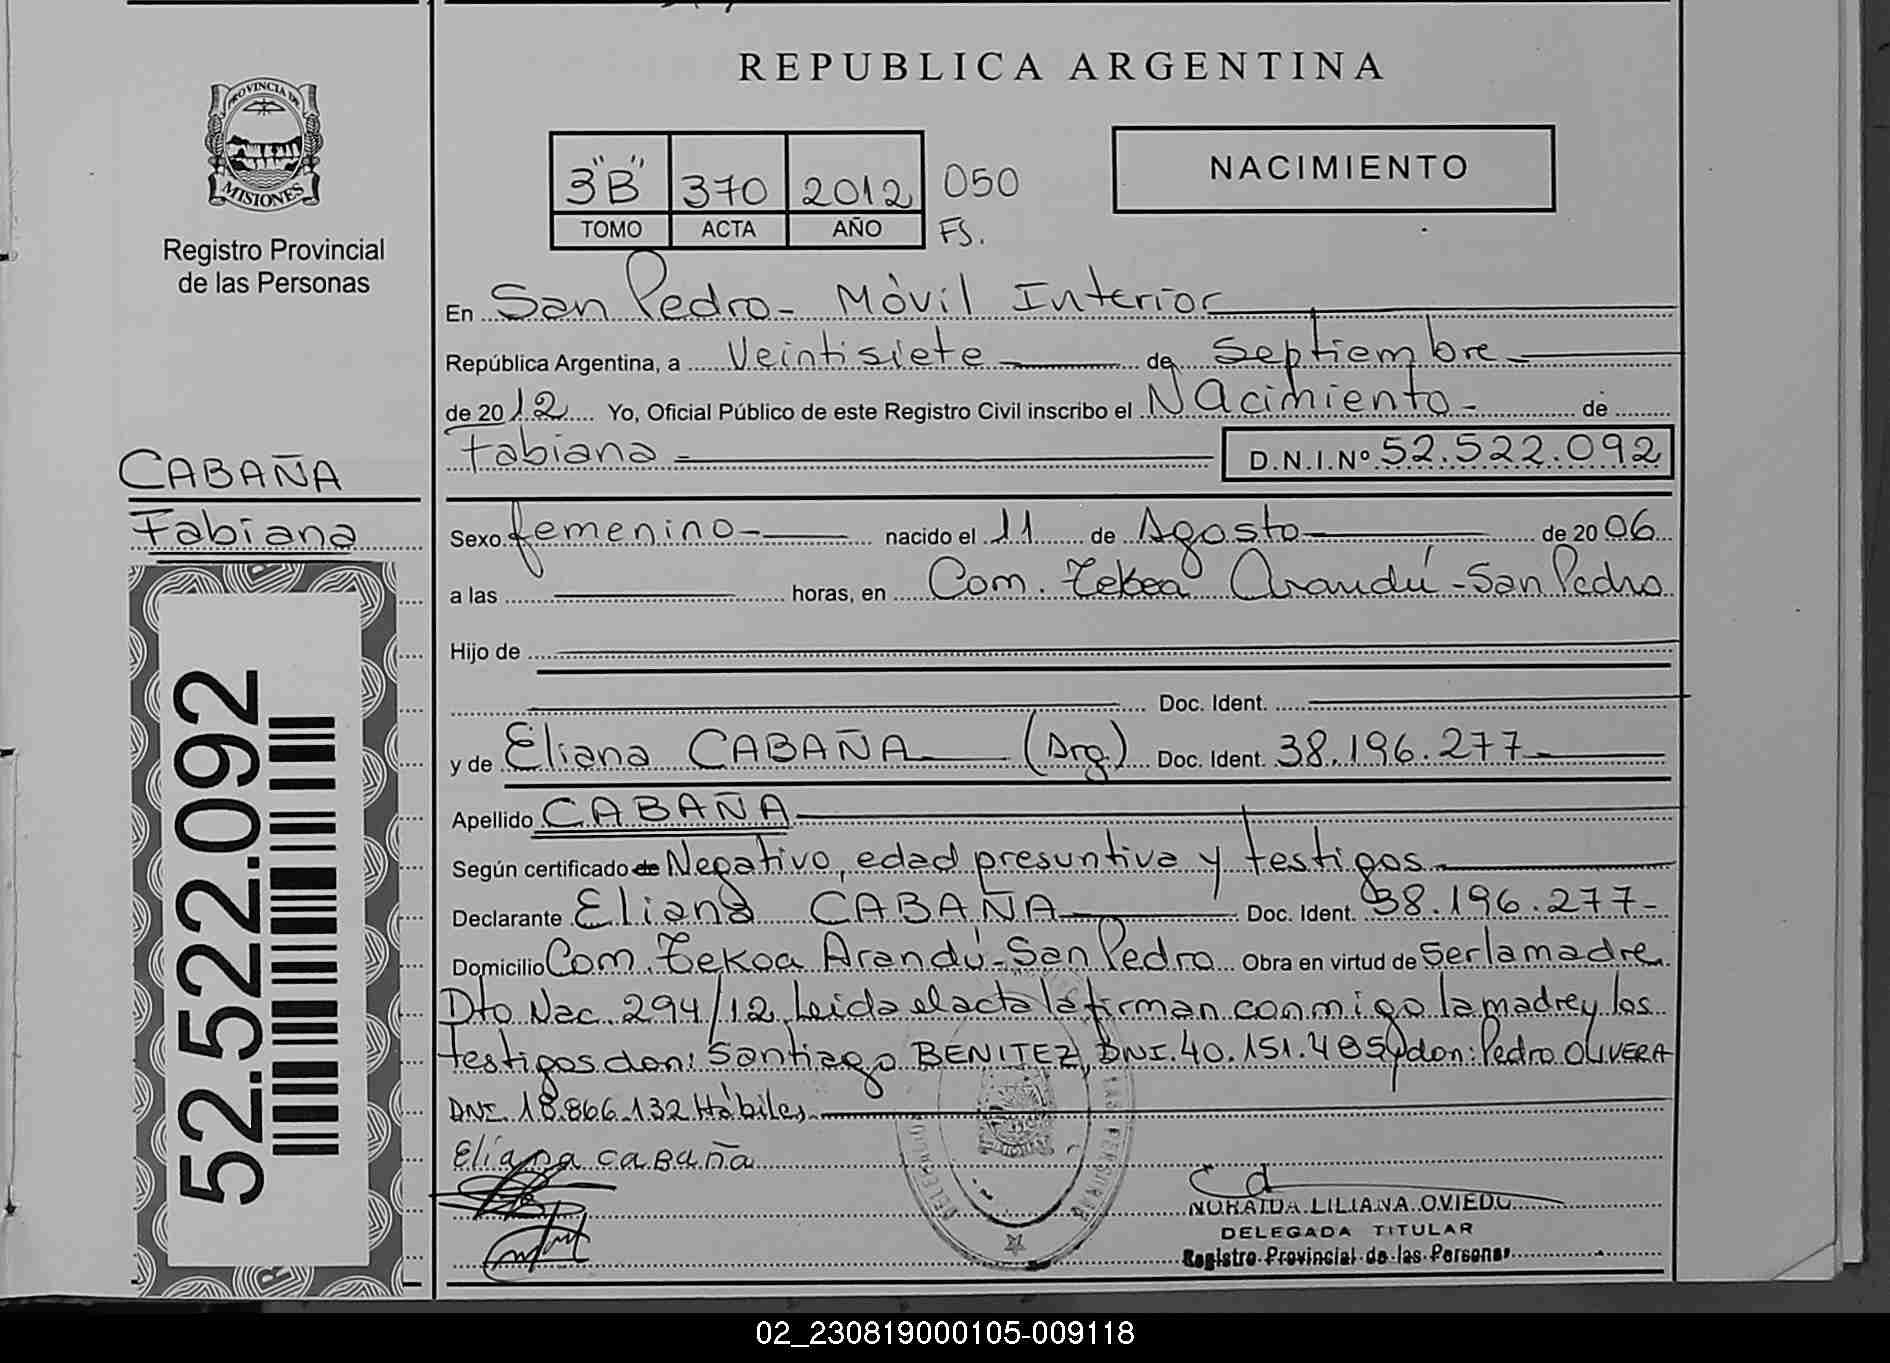 REPUBLICA ARGENTINA
PROVINCIA DE
MISIONES
Registro Provincial
de las Personas
3"B" 370 2012 050
TOMO ACTA AÑO FS.
NACIMIENTO
En San Pedro - Móvil Interior
República Argentina, a Veintisiete de Septiembre
de 2012 Yo, Oficial Público de este Registro Civil inscribo el Nacimiento - de
Fabiana - D.N.I.Nº 52.522.092
CABAÑA
Fabiana
52.522.092
Sexo femenino - nacido el 11 de Agosto de 2006
a las horas, en Com. Tekoa Arandú - San Pedro
Hijo de
Doc. Ident.
y de Eliana CABAÑA (Arg) Doc. Ident. 38.196.277-
Apellido CABAÑA
Según certificado de Negativo, edad presuntiva y testigos
Declarante Eliana CABAÑA Doc. Ident. 38.196.277-
Domicilio Com. Tekoa Arandú - San Pedro Obra en virtud de Ser la madre
Dto Nac. 294/12 Leida el acta la firman conmigo la madre y los
testigos don: Santiago BENITEZ, DNI. 40.151.485 y don: Pedro OLIVERA
DNI. 18.866.132 Hábiles
Eliana cabaña
NORAIDA LILIANA OVIEDO
DELEGADA TITULAR
Registro Provincial de las Personas
02_230819000105-009118